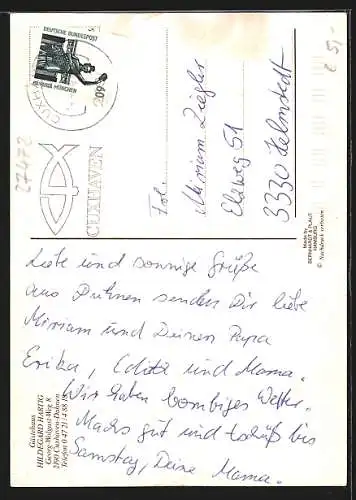 DEUTSCHE BUNDESPOST
BAVARIA MÜNCHEN
CUXHAVEN
27472
€ 5,-
Frl.
Miriam Ziegler
Elzweg 51
3330 Helmstedt
Made by
BERNHARDT & PLAUT
HAMBURG
© Nachdruck verboten
Liebe und sonnige Grüße
aus Duhnen senden Dir liebe
Miriam und Deinen Papa
Erika, Edith und Mama.
Wir haben bombiges Wetter.
Machs gut und tschüß bis
Samstag, Deine Mama.
Gästehaus
HILDEGARD HARTIG
Georg-Wolgast-Weg 8
2190 Cuxhaven-Duhnen
Telefon 0 47 21 / 4 88 18